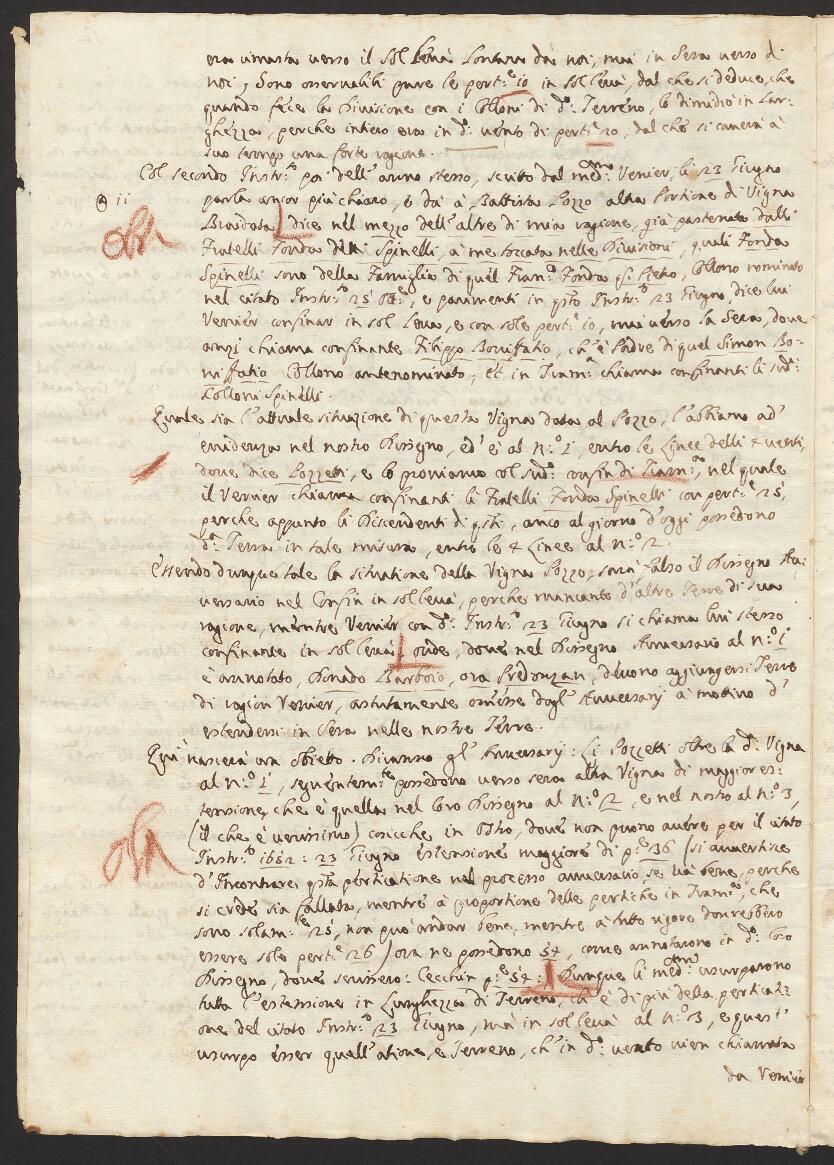 era rimasta verso il Sol levà lontan da noi, mai in Sera verso di
noi, Sono osservabili pure le pert:e 10 in sol levà, dal che si deduce, che
quando fece la Divisione con i Colloni di d:o Terreno, lo dimidiò in Lar-
ghezza, perche intiero era in d:o vento di pert:e 20, dal che si caverà à
suo tempo una forte ragione.
Col secondo Instr:o poi dell'anno stesso, scritto dal med:mo Venier, li 23 Giugno
@ 11 parla ancor più chiaro, e dà à Battista Pozzo altra Portione di Vigna
Braidata, dice nel mezzo dell'altre di mia ragione, già pastenata dalli
Fratelli Fonda detti Spinelli, à me toccata nelle Divisioni, quali Fonda
Spinelli sono della Famiglia di quel Fonda Collono nominato
nel citato Instr:o 25 e parimenti in q:sto Instr:o 23 Giugno, dice lui
Vernier confinar in sol leva, e con sole pert:e 10, mai verso la Sera, dove
anzi chiama confinante Filippo Boniffatio, ch'è Padre di quel Simon Bo-
niffatio Collono antenominato, et in Tram:a chiama confinanti li sud:i
Colloni Spinelli.
Quale sia l'attuale situazione di questa Vigna data al Pozzo, l'abbiamo ad'
evidenza nel nostro Dissegno, ed' è al N:o 1, entro le Linee delli 4 venti,
dove dice Pozzetti, e lo proviamo col sud:o confin di Tram:a, nel quale
il Vernier chiama confinanti li Fratelli Fonda Spinelli con pert:e 25,
perche appunto li Discendenti di q:sti, anco al giorno d'oggi possedono
d:a Terra in tale misura, entro le 4 Linee al N:o 2.
Essendo dunque tale la situatione della Vigna Pozzo, sarà falso il Dissegno Av-
versario nel Confin in sol levà, perche mancante d'altre Terre di sua
ragione, mentre Vernier con d:o Instr:o 23 Giugno si chiama lui stesso
confinante in sol levà, onde, dove nel Dissegno Avversario al N:o 1
è annotato, Donado Barboio, ora Predonzan, devono aggiungersi Terre
di ragion Vernier, astutamente omesse dagl'Avversarij à mottivo d'
estendersi in Sera nelle nostre Terre.
Qui nascerà un obietto. Diranno gl'Avversarij: Li Pozzetti oltre la d:a Vigna
al N:o 1, seguentem:te possedono verso sera altra Vigna di maggior es-
tensione, che è quella nel loro Dissegno al N:o 2, e nel nostro al N:o 3,
(il che è verissimo) cosicche in Ostro, dove non puono avere per il citato
Instr:o 1652: 23 Giugno estensione maggiore di p:e 36 (si avvertire
d'Incontrare q:sta perticatione nel processo avversario se và bene, perche
si crede sia fallata, mentre à proportione delle pertiche in Tram:a, che
sono solam:te 25, non può andar bene, mentre à tutto rigore dovrebbero
essere sole pert:e 26) ora ne possedono 54, come annotarono in d:o loro
Dissegno, dove scrissero: Cecchin p:e 54: Dunque li med:mi usurparono
tutta l'estensione in Lunghezza di Terreno, ch'è di più della perticati-
one del citato Instr:o 23 Giugno, mà in sol levà al N:o 3, e quest'
usurpo esser quell'atione, e Terreno, ch'in d:o vento vien chiamata
da Vernier